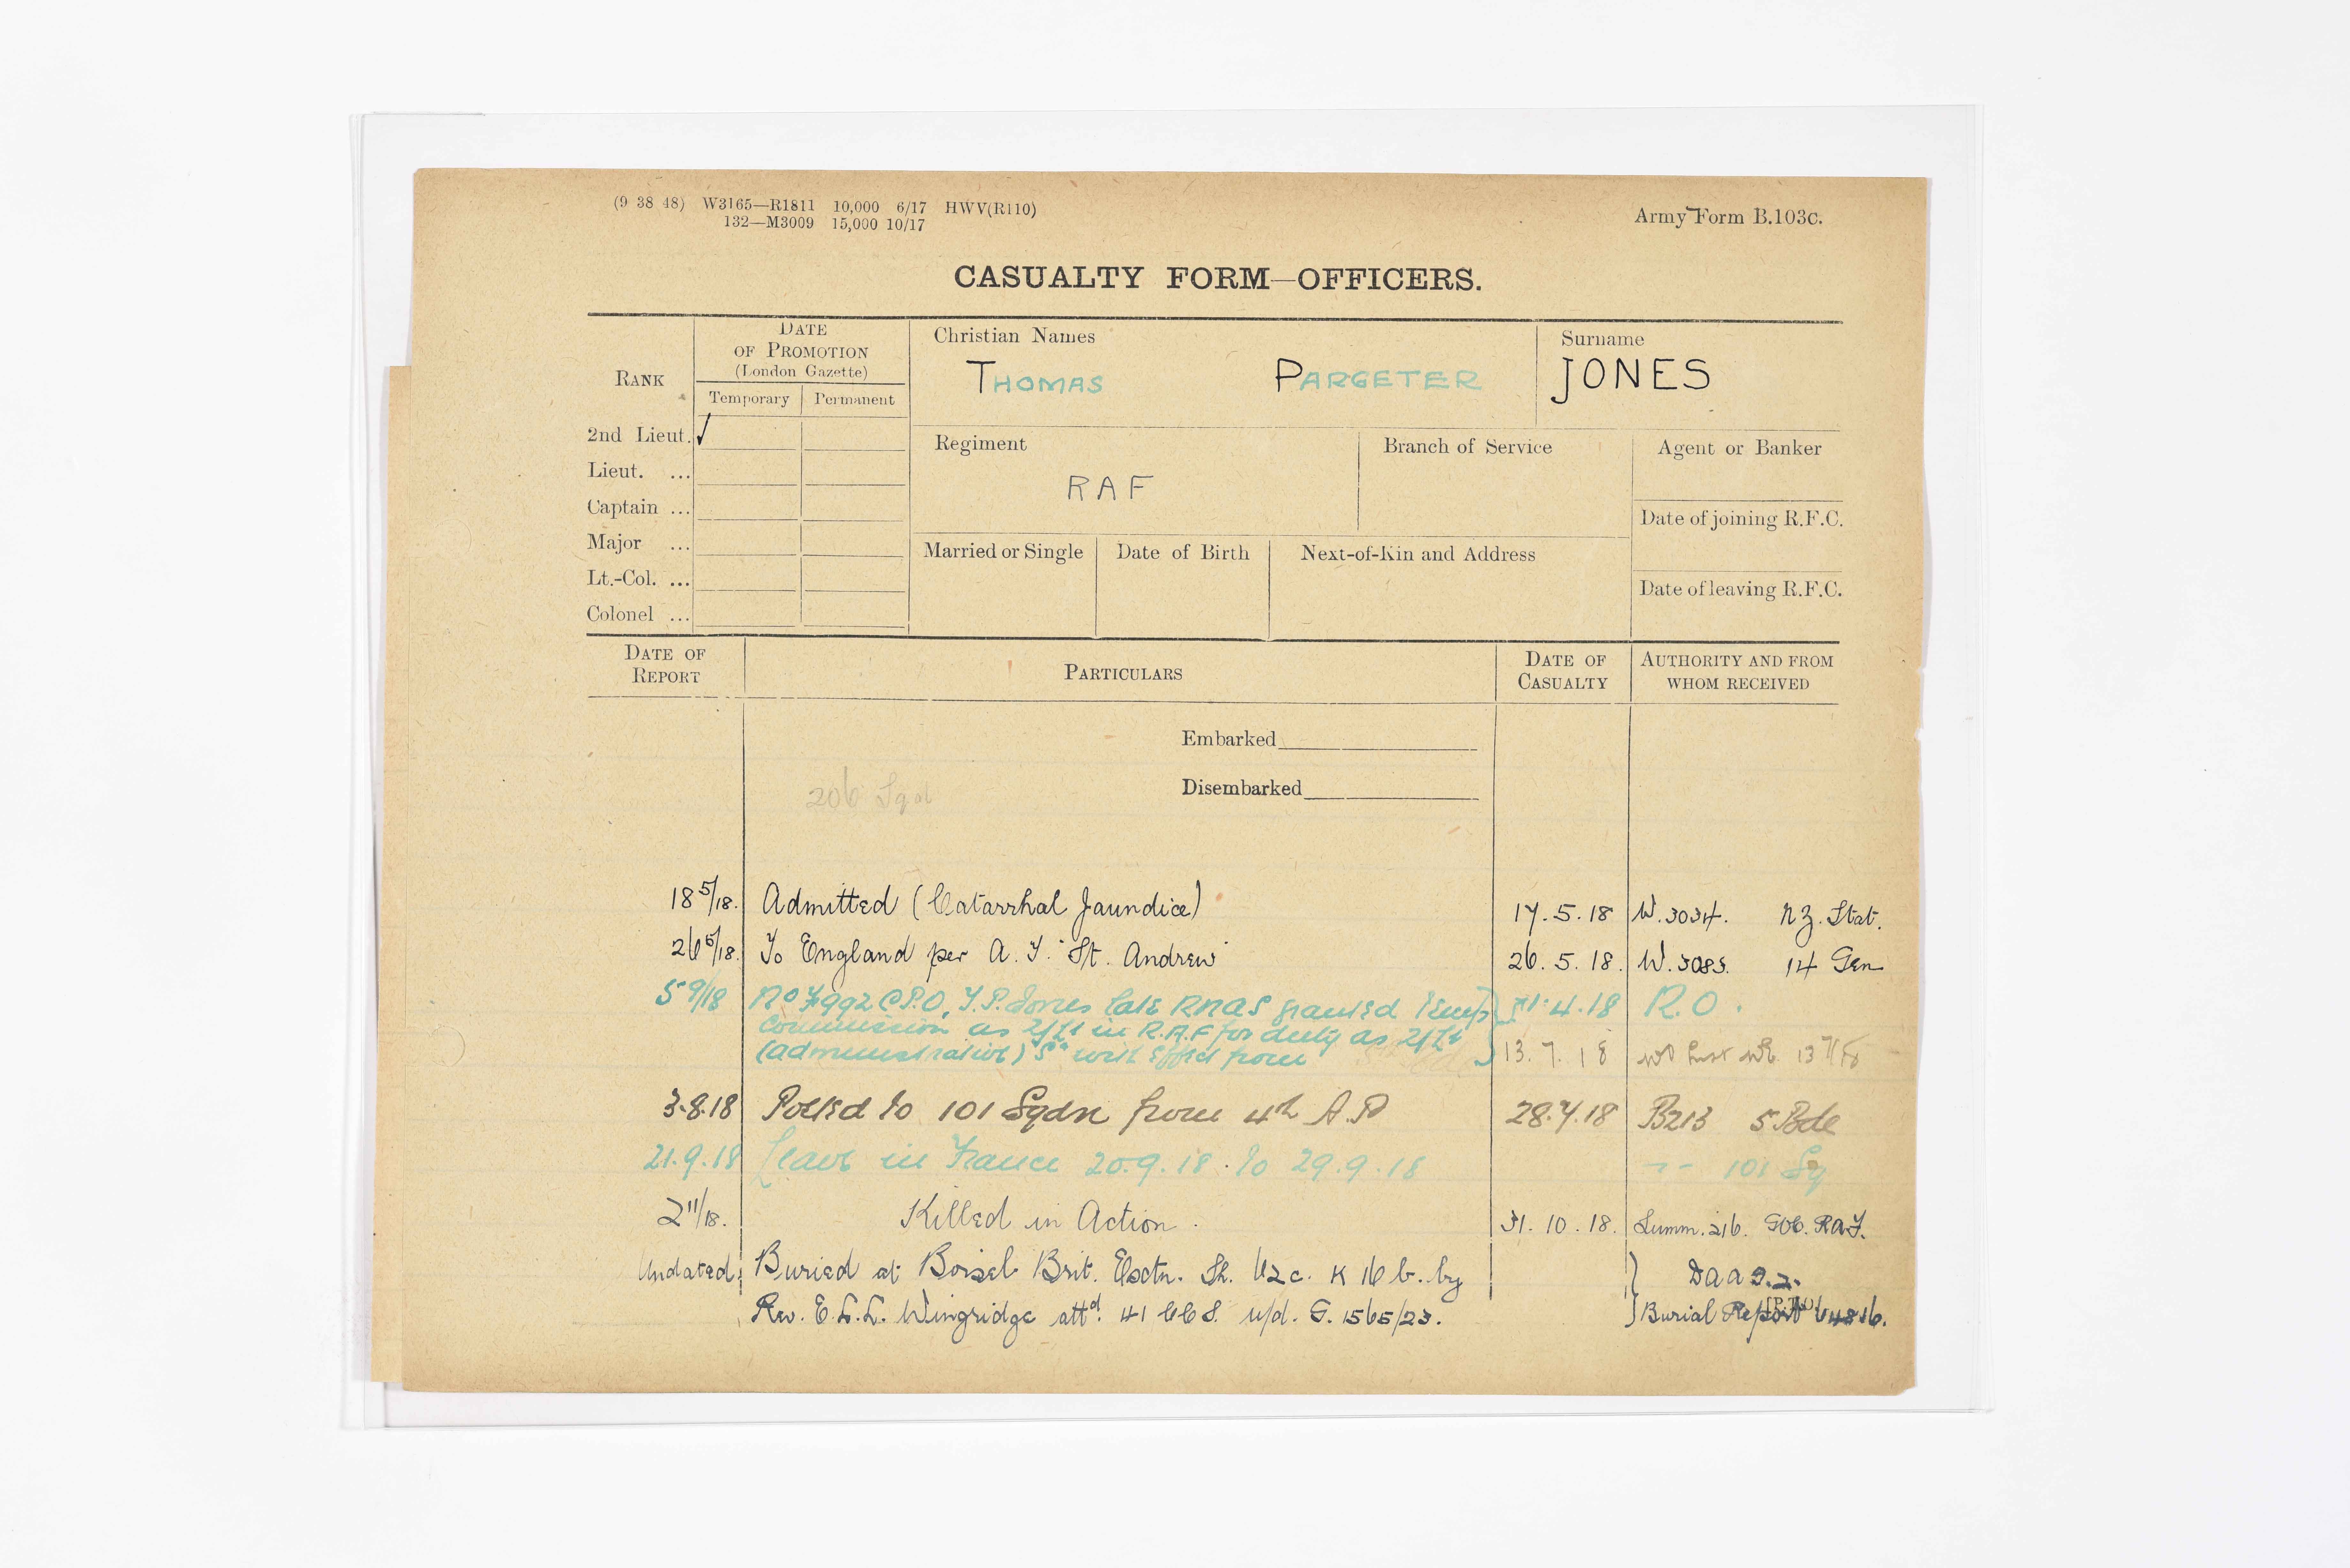 (9 38 48) W3165—R1811 10,000 6/17 HWV(R110)
132—M3009 15,000 10/17
Army Form B.103c.
CASUALTY FORM—OFFICERS.
RANK
DATE OF PROMOTION (London Gazette)
Temporary Permanent
Christian Names
THOMAS PARGETER
Surname
JONES
2nd Lieut. ✓
Lieut. ...
Captain ...
Major ...
Lt.-Col. ...
Colonel ...
Regiment
RAF
Branch of Service
Agent or Banker
Date of joining R.F.C.
Married or Single
Date of Birth
Next-of-Kin and Address
Date of leaving R.F.C.
DATE OF REPORT
PARTICULARS
DATE OF CASUALTY
AUTHORITY AND FROM WHOM RECEIVED
Embarked
206 Sqd
Disembarked
18 5/18. Admitted (Catarrhal Jaundice) 17.5.18 W.3034. NZ. Stat.
26 5/18. To England per A.T. St. Andrew 26.5.18. W.3083. 14 Gen
5 9/18 No F9992 C.P.O. T.P. Jones late RNAS granted temp 1.4.18 R.O.
Commission as 2/Lt in R.A.F for duty as 2/Lt
(administrative) with effect from 13.7.18
3.8.18 Posted to 101 Sqdn from 4th A.D 28.7.18 B213 5 Bde
21.9.18 Leave in France 20.9.18 to 29.9.18 101 Sq
2 11/18. Killed in Action. 31.10.18. Summ. 216. GOC. RAF.
Undated Buried at Brit. Sh. 62c. K 16 b. by DAAG.
Rev. E.L.L. Wingridge attd. 41 CCS. u/d. G. 1565/23. Burial Report